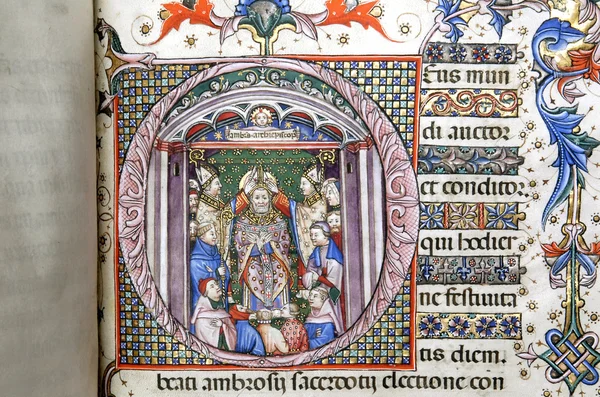 archiepiscop
Deus mun
di auctor
et conditor
qui hodier
ne festiuita
tis diem.
beati ambrosij sacerdotij electione con